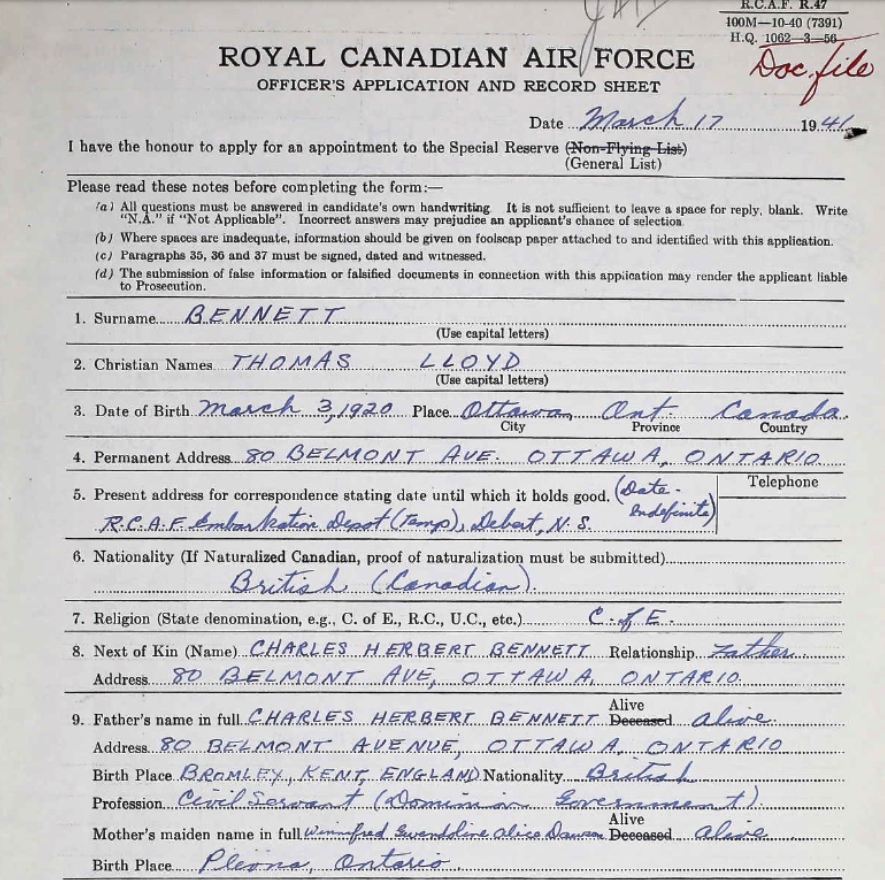 R.C.A.F. R.47
100M—10-40 (7391)
H.Q. 1062—3—56
Doc. file
ROYAL CANADIAN AIR FORCE
OFFICER'S APPLICATION AND RECORD SHEET
Date March 17 1941
I have the honour to apply for an appointment to the Special Reserve (Non-Flying List)
(General List)
Please read these notes before completing the form:—
(a) All questions must be answered in candidate's own handwriting. It is not sufficient to leave a space for reply, blank. Write
"N.A." if "Not Applicable". Incorrect answers may prejudice an applicant's chance of selection.
(b) Where spaces are inadequate, information should be given on foolscap paper attached to and identified with this application.
(c) Paragraphs 35, 36 and 37 must be signed, dated and witnessed.
(d) The submission of false information or falsified documents in connection with this application may render the applicant liable
to Prosecution.
1. Surname BENNETT
(Use capital letters)
2. Christian Names THOMAS LLOYD
(Use capital letters)
3. Date of Birth March 3, 1920 Place Ottawa, Ont. Canada.
City Province Country
4. Permanent Address 80 BELMONT AVE. OTTAWA, ONTARIO
Telephone
5. Present address for correspondence stating date until which it holds good. (Date -
Indefinite)
R.C.A.F. Embarkation Depot (Temp), Debert, N.S.
6. Nationality (If Naturalized Canadian, proof of naturalization must be submitted)
British (Canadian).
7. Religion (State denomination, e.g., C. of E., R.C., U.C., etc.) C. of E.
8. Next of Kin (Name) CHARLES HERBERT BENNETT Relationship Father
Address 80 BELMONT AVE, OTTAWA, ONTARIO.
Alive
9. Father's name in full CHARLES HERBERT BENNETT Deceased alive.
Address 80 BELMONT AVENUE, OTTAWA, ONTARIO
Birth Place BROMLEY, KENT, ENGLAND Nationality British
Profession Civil Servant (Dominion Government).
Alive
Mother's maiden name in full Winnifred Gwendoline Alice Dawson Deceased alive
Birth Place Plevna, Ontario.